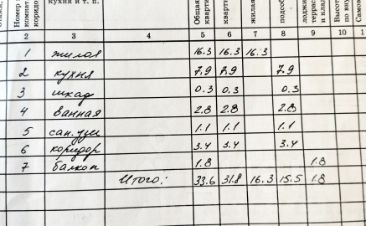 Номер
кухня и т. п.
Общая
кварти
жилая
подсоб
лоджи
террас
и клад
Высот
по вну
Самово
2 3 4 5 6 7 8 9 10 1
1 жилая 16.3 16.3 16.3
2 кухня 7.9 7.9 7.9
3 шкаф 0.3 0.3 0.3
4 ванная 2.8 2.8 2.8
5 сан. узел 1.1 1.1 1.1
6 коридор 3.4 3.4 3.4
7 балкон 1.8 1.8
Итого: 33.6 31.8 16.3 15.5 1.8